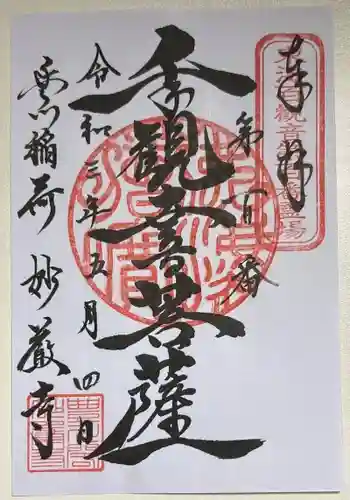 奉拝
第百番
千手観音菩薩
令和三年五月四日
豊川稲荷 妙厳寺